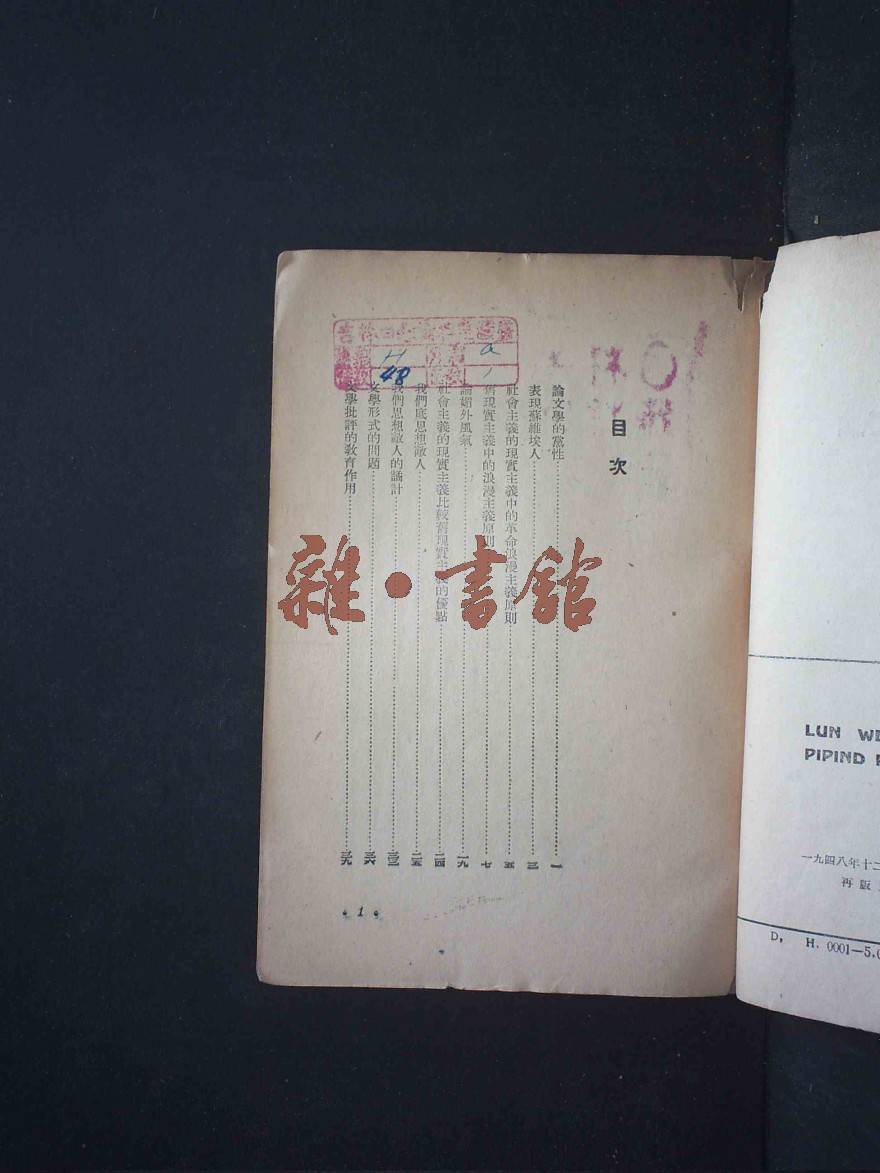 目次
論文學的黨性 一
表現蘇維埃人 三
社會主義的現實主義中的革命浪漫主義原則 五
舊現實主義中的浪漫主義原則 七
論媚外風氣 一九
社會主義的現實主義比較舊現實主義的優點 二四
我們底思想敵人 二五
我們思想敵人的譎計 三三
文學形式的問題 三六
文學批評的教育作用 三九
• 1 •
H
a
48
1
雜•書館
LUN WE
PIPIND
一九四八年十二
再版
D, H. 0001—5,0